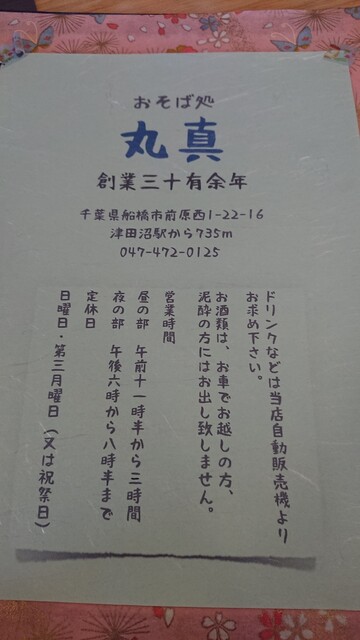 おそば処
丸真
創業三十有余年
千葉県船橋市前原西1-22-16
津田沼駅から735m
047-472-0125
ドリンクなどは当店自動販売機より
お求め下さい。
お酒類は、お車でお越しの方、
泥酔の方にはお出し致しません。
営業時間
昼の部 午前十一時半から三時間
夜の部 午後六時から八時半まで
定休日
日曜日・第三月曜日（又は祝祭日）